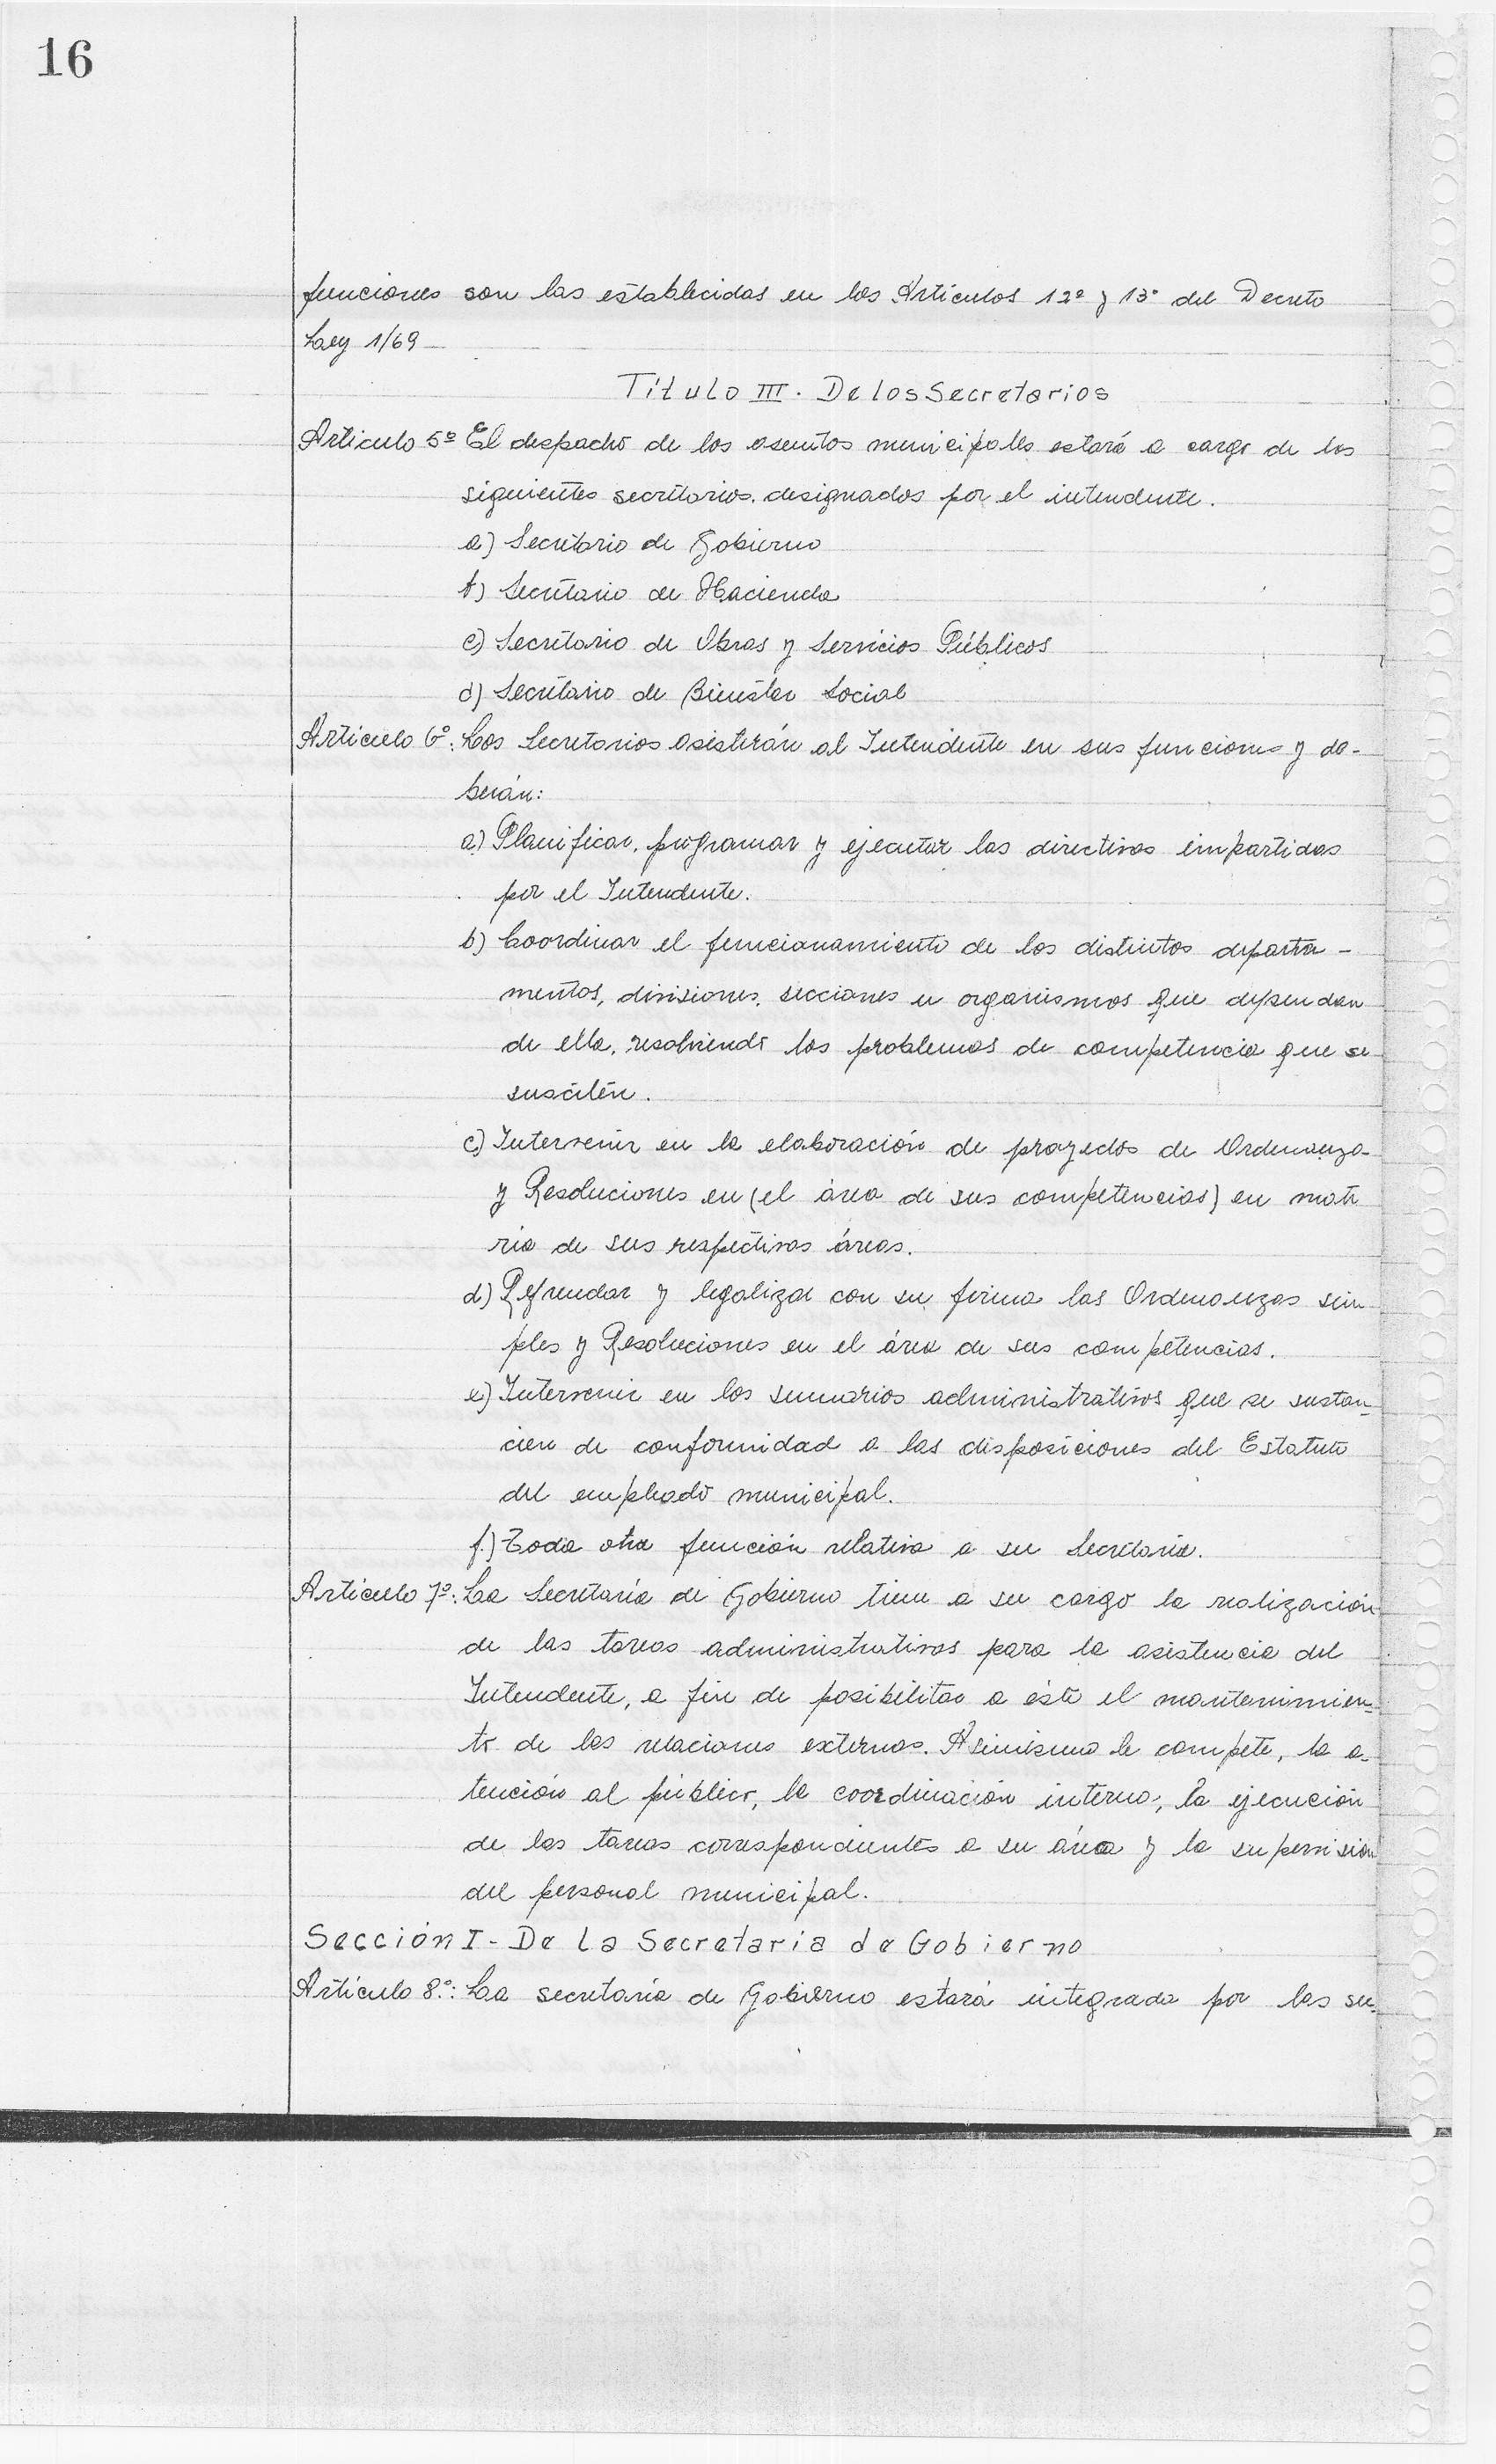 16
funciones son las establecidas en los Artículos 12º y 13º del Decreto
Ley 1/69
Título III. De los Secretarios
Artículo 5º El despacho de los asuntos municipales estará a cargo de los
siguientes secretarios, designados por el intendente.
a) Secretario de Gobierno
b) Secretario de Hacienda
c) Secretario de Obras y Servicios Públicos
d) Secretario de Bienestar Social
Artículo 6º: Los Secretarios asistirán al Intendente en sus funciones y de-
berán:
a) Planificar, programar y ejecutar las directivas impartidas
por el Intendente.
b) Coordinar el funcionamiento de los distintos departa-
mentos, divisiones, secciones u organismos que dependan
de ella, resolviendo los problemas de competencia que se
susciten.
c) Intervenir en la elaboración de proyectos de Ordenanza
y Resoluciones en (el área de sus competencias) en mate
ria de sus respectivas áreas.
d) Refrendar y legalizar con su firma las Ordenanzas sim
ples y Resoluciones en el área de sus competencias.
e) Intervenir en los sumarios administrativos que se sustan-
cien de conformidad a las disposiciones del Estatuto
del empleado municipal.
f) Toda otra función relativa a su Secretaría.
Artículo 7º: La Secretaría de Gobierno tiene a su cargo la realización
de las tareas administrativas para la asistencia del
Intendente, a fin de posibilitar a éste el mantenimien-
to de las relaciones externas. Asimismo le compete, la a-
tención al público, la coordinación interna, la ejecución
de las tareas correspondientes a su área y la supervisión
del personal municipal.
Sección I - De la Secretaria de Gobierno
Artículo 8º: La secretaría de Gobierno estará integrada por las su-